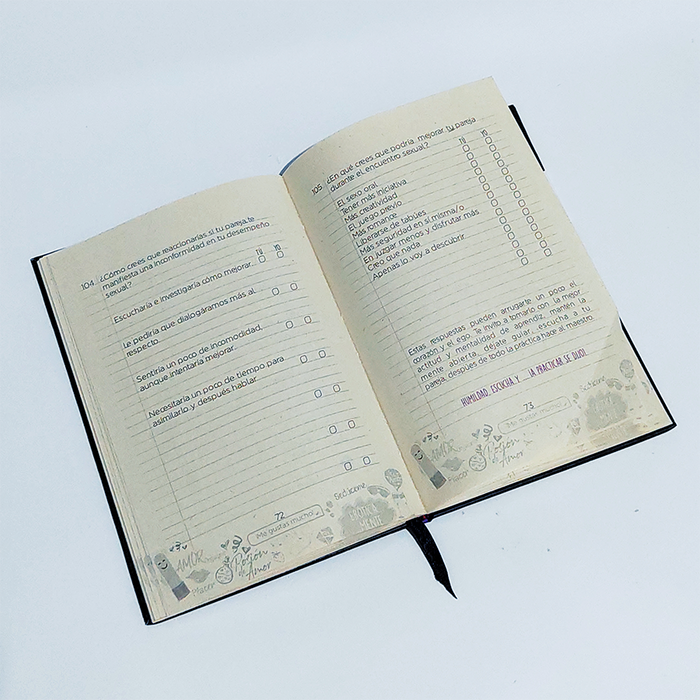 104 ¿Cómo crees que reaccionarías si tu pareja te
manifiesta una inconformidad en tu desempeño
sexual?
TÚ YO
Escucharía e investigaría cómo mejorar.
Le pediría que dialogáramos más al
respecto.
Sentiría un poco de incomodidad,
aunque intentaría mejorar.
Necesitaría un poco de tiempo para
asimilarlo y después hablar.
72
¡Me gustas mucho!
Sedúceme
EROTICA
MENTE
AMOR
Placer
Poción
de Amor
105 ¿En qué crees que podría mejorar tu pareja
durante el encuentro sexual?
TÚ YO
El sexo oral
Tener más iniciativa
Más creatividad
El juego previo
Más romance
Liberarse de tabúes
Más seguridad en sí misma/o
En juzgar menos y disfrutar más
Creo que nada
Apenas lo voy a descubrir
Estas respuestas pueden arrugarte un poco el
corazón y el ego. Te invito a tomarlo con la mejor
actitud y mentalidad de aprendiz, mantén la
mente abierta, déjate guiar, escucha a tu
pareja, después de todo la práctica hace al maestro.
HUMILDAD, ESCUCHA Y ¡A PRACTICAR SE DIJO!
73
¡Me gustas mucho!
Sedúceme
AMOR
Placer
Poción
de Amor